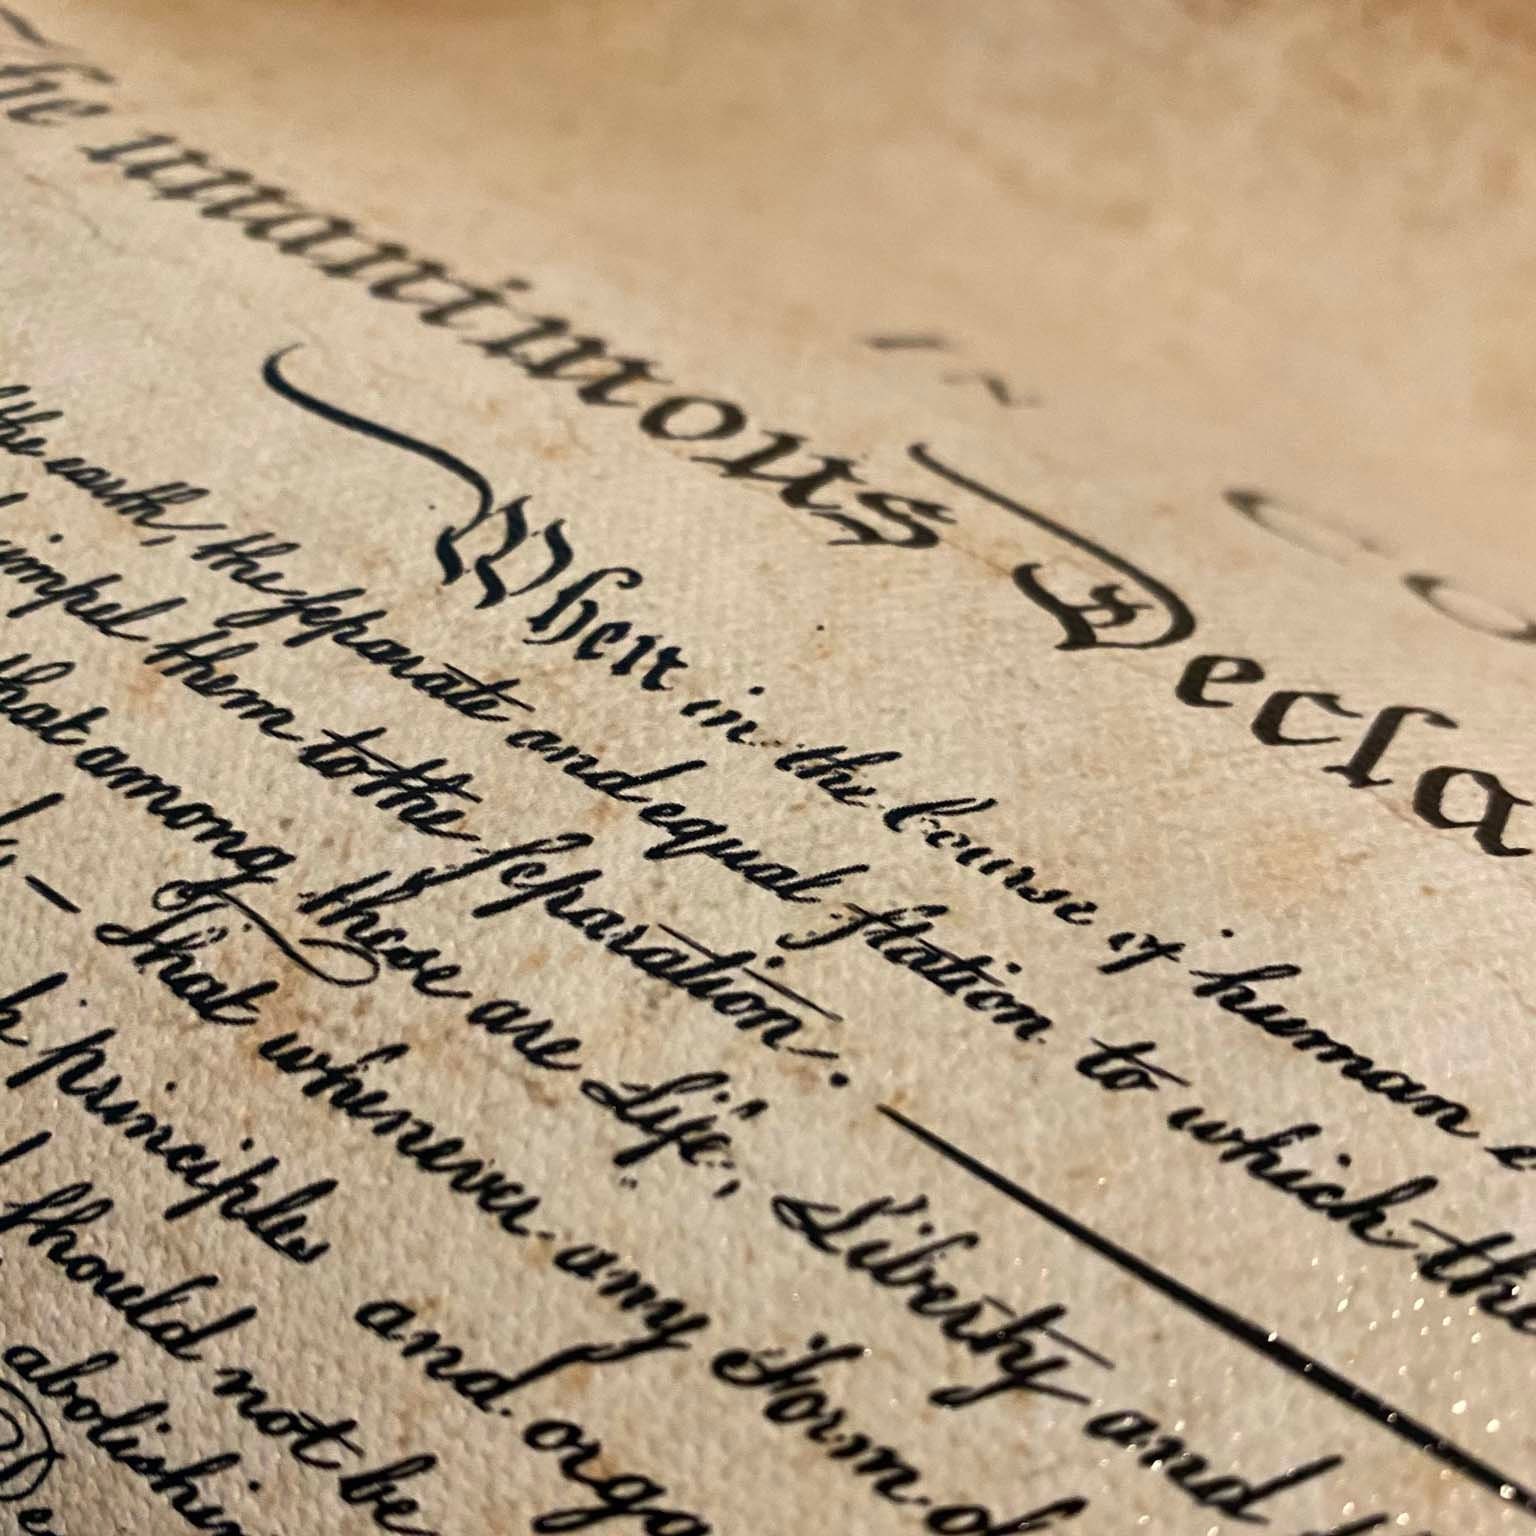 IN CO
The unanimous Decla
When in the Course of human e
the earth, the separate and equal station to which the
impel them to the separation.
that among these are Life, Liberty and
— That whenever any Form of
principles and orga
should not be
abolishin